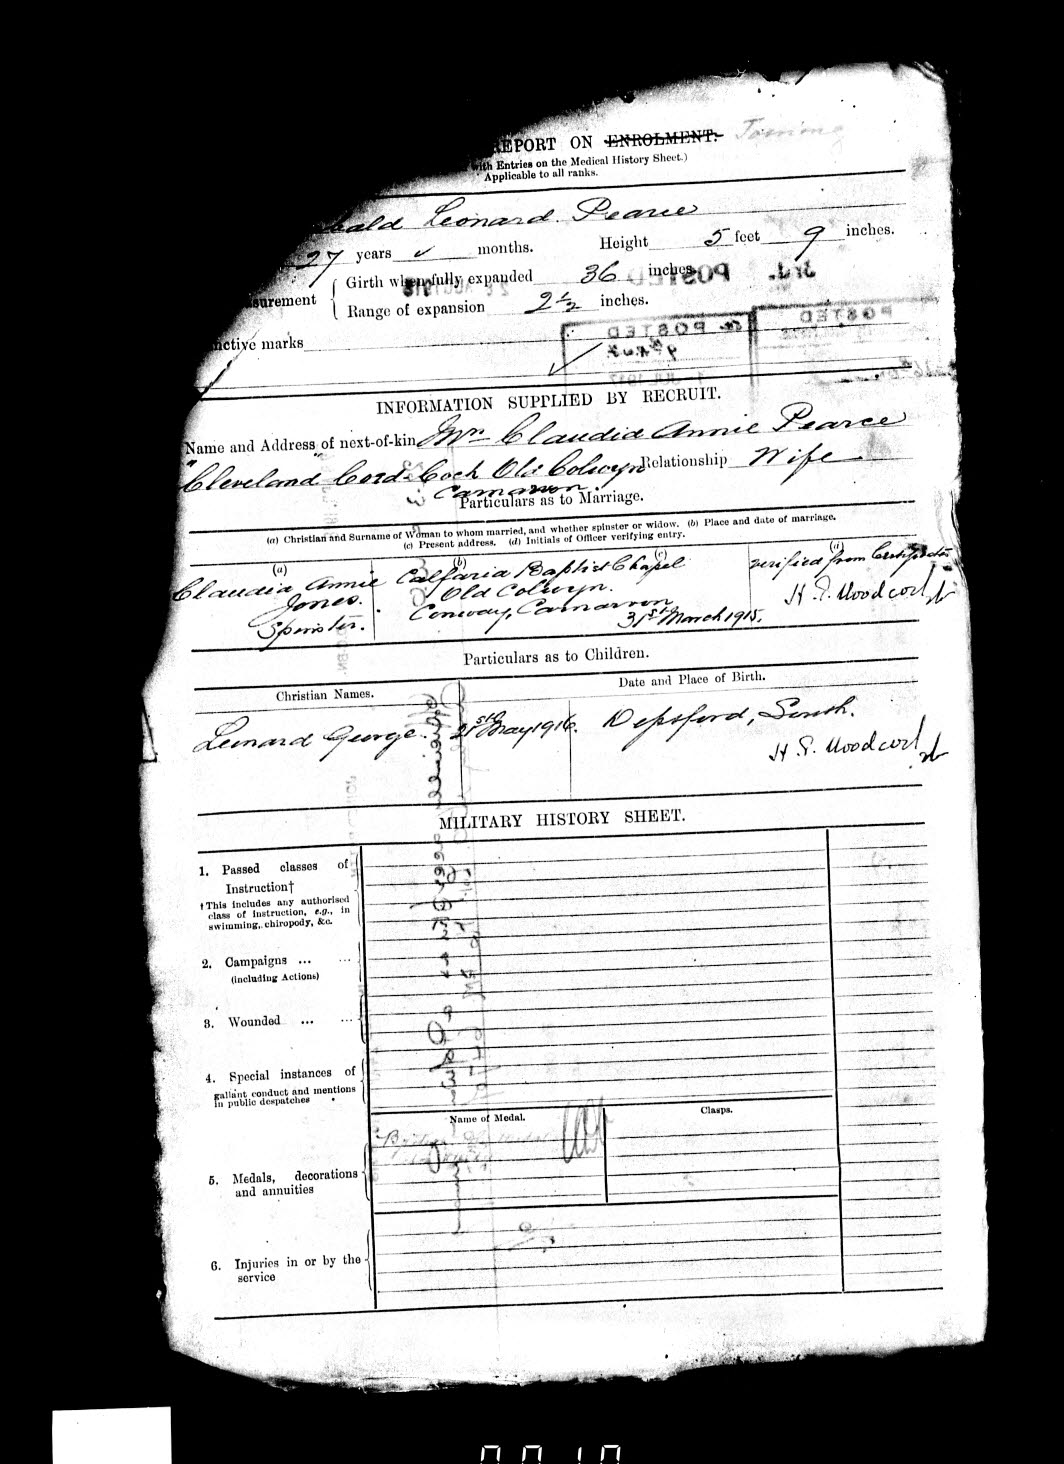 REPORT ON ENROLMENT. Joining
with Entries on the Medical History Sheet.)
Applicable to all ranks.
bald Leonard Pearce
27 years ✓ months. Height 5 feet 9 inches.
Girth when fully expanded 36 inches
surement
Range of expansion 2½ inches.
nctive marks
POSTED
3rd.
POSTED
POSTED
INFORMATION SUPPLIED BY RECRUIT.
Name and Address of next-of-kin Mrs Claudia Annie Pearce
"Cleveland" Coed-Coch Old Colwyn Relationship Wife
Carnarvon.
Particulars as to Marriage.
(a) Christian and Surname of Woman to whom married, and whether spinster or widow. (b) Place and date of marriage.
(c) Present address. (d) Initials of Officer verifying entry.
(a) (b) (c) (d)
Claudia Annie Calfaria Baptist Chapel verified from Certificate
Jones. Old Colwyn. H. E. Woodcock
Spinster. Conway, Carnarvon
31st March 1915.
Particulars as to Children.
Christian Names. Date and Place of Birth.
Leonard George. 21st May 1916. Deptford, South.
H. E. Woodcock
MILITARY HISTORY SHEET.
1. Passed classes of
Instruction†
†This includes any authorised
class of instruction, e.g., in
swimming, chiropody, &c.
2. Campaigns ... ...
(including Actions)
3. Wounded ... ...
4. Special instances of
gallant conduct and mentions
in public despatches
Name of Medal. Clasps.
5. Medals, decorations
and annuities
6. Injuries in or by the
service